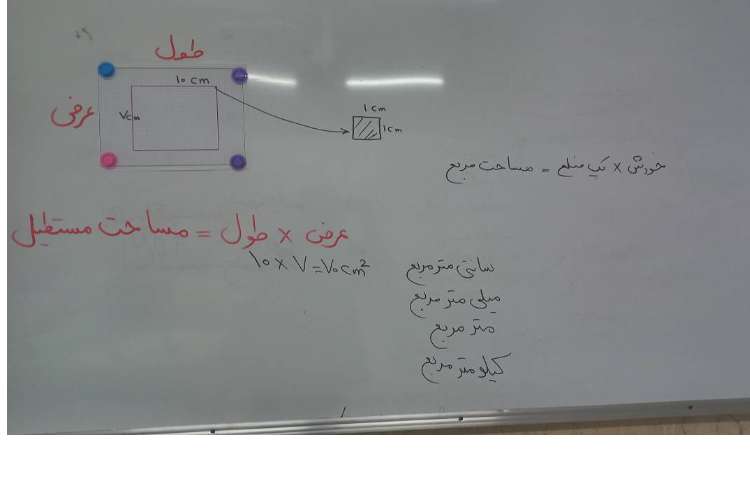 طول
۱۰ cm
عرض
۷cm
۱cm
۱cm
مساحت مربع = یک ضلع × خودش
مساحت مستطیل = طول × عرض
۱۰ × ۷ = ۷۰ cm²
سانتی متر مربع
میلی متر مربع
متر مربع
کیلو متر مربع